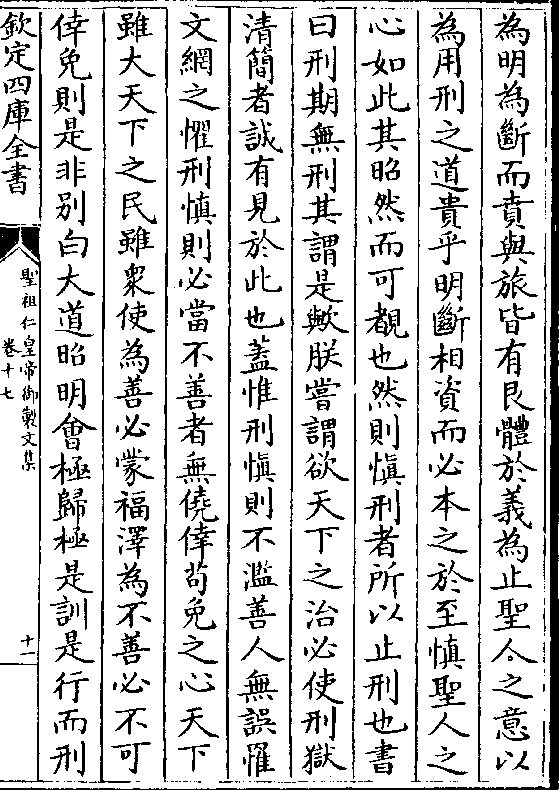 為明為斷而賁與旅皆有艮體於義為止聖人之意以
為用刑之道貴乎明斷相資而必本之於至慎聖人之
心如此其昭然而可覩也然則慎刑者所以止刑也書
曰刑期無刑其謂是歟朕嘗謂欲天下之治必使刑獄
清簡者誠有見於此也蓋惟刑慎則不濫善人無誤罹
文網之懼刑慎則必當不善者無僥倖苟免之心天下
雖大天下之民雖衆使為善必蒙福澤為不善必不可
倖免則是非別白大道昭明會極歸極是訓是行而刑
欽定四庫全書
聖祖仁皇帝御製文集
卷十七
十一